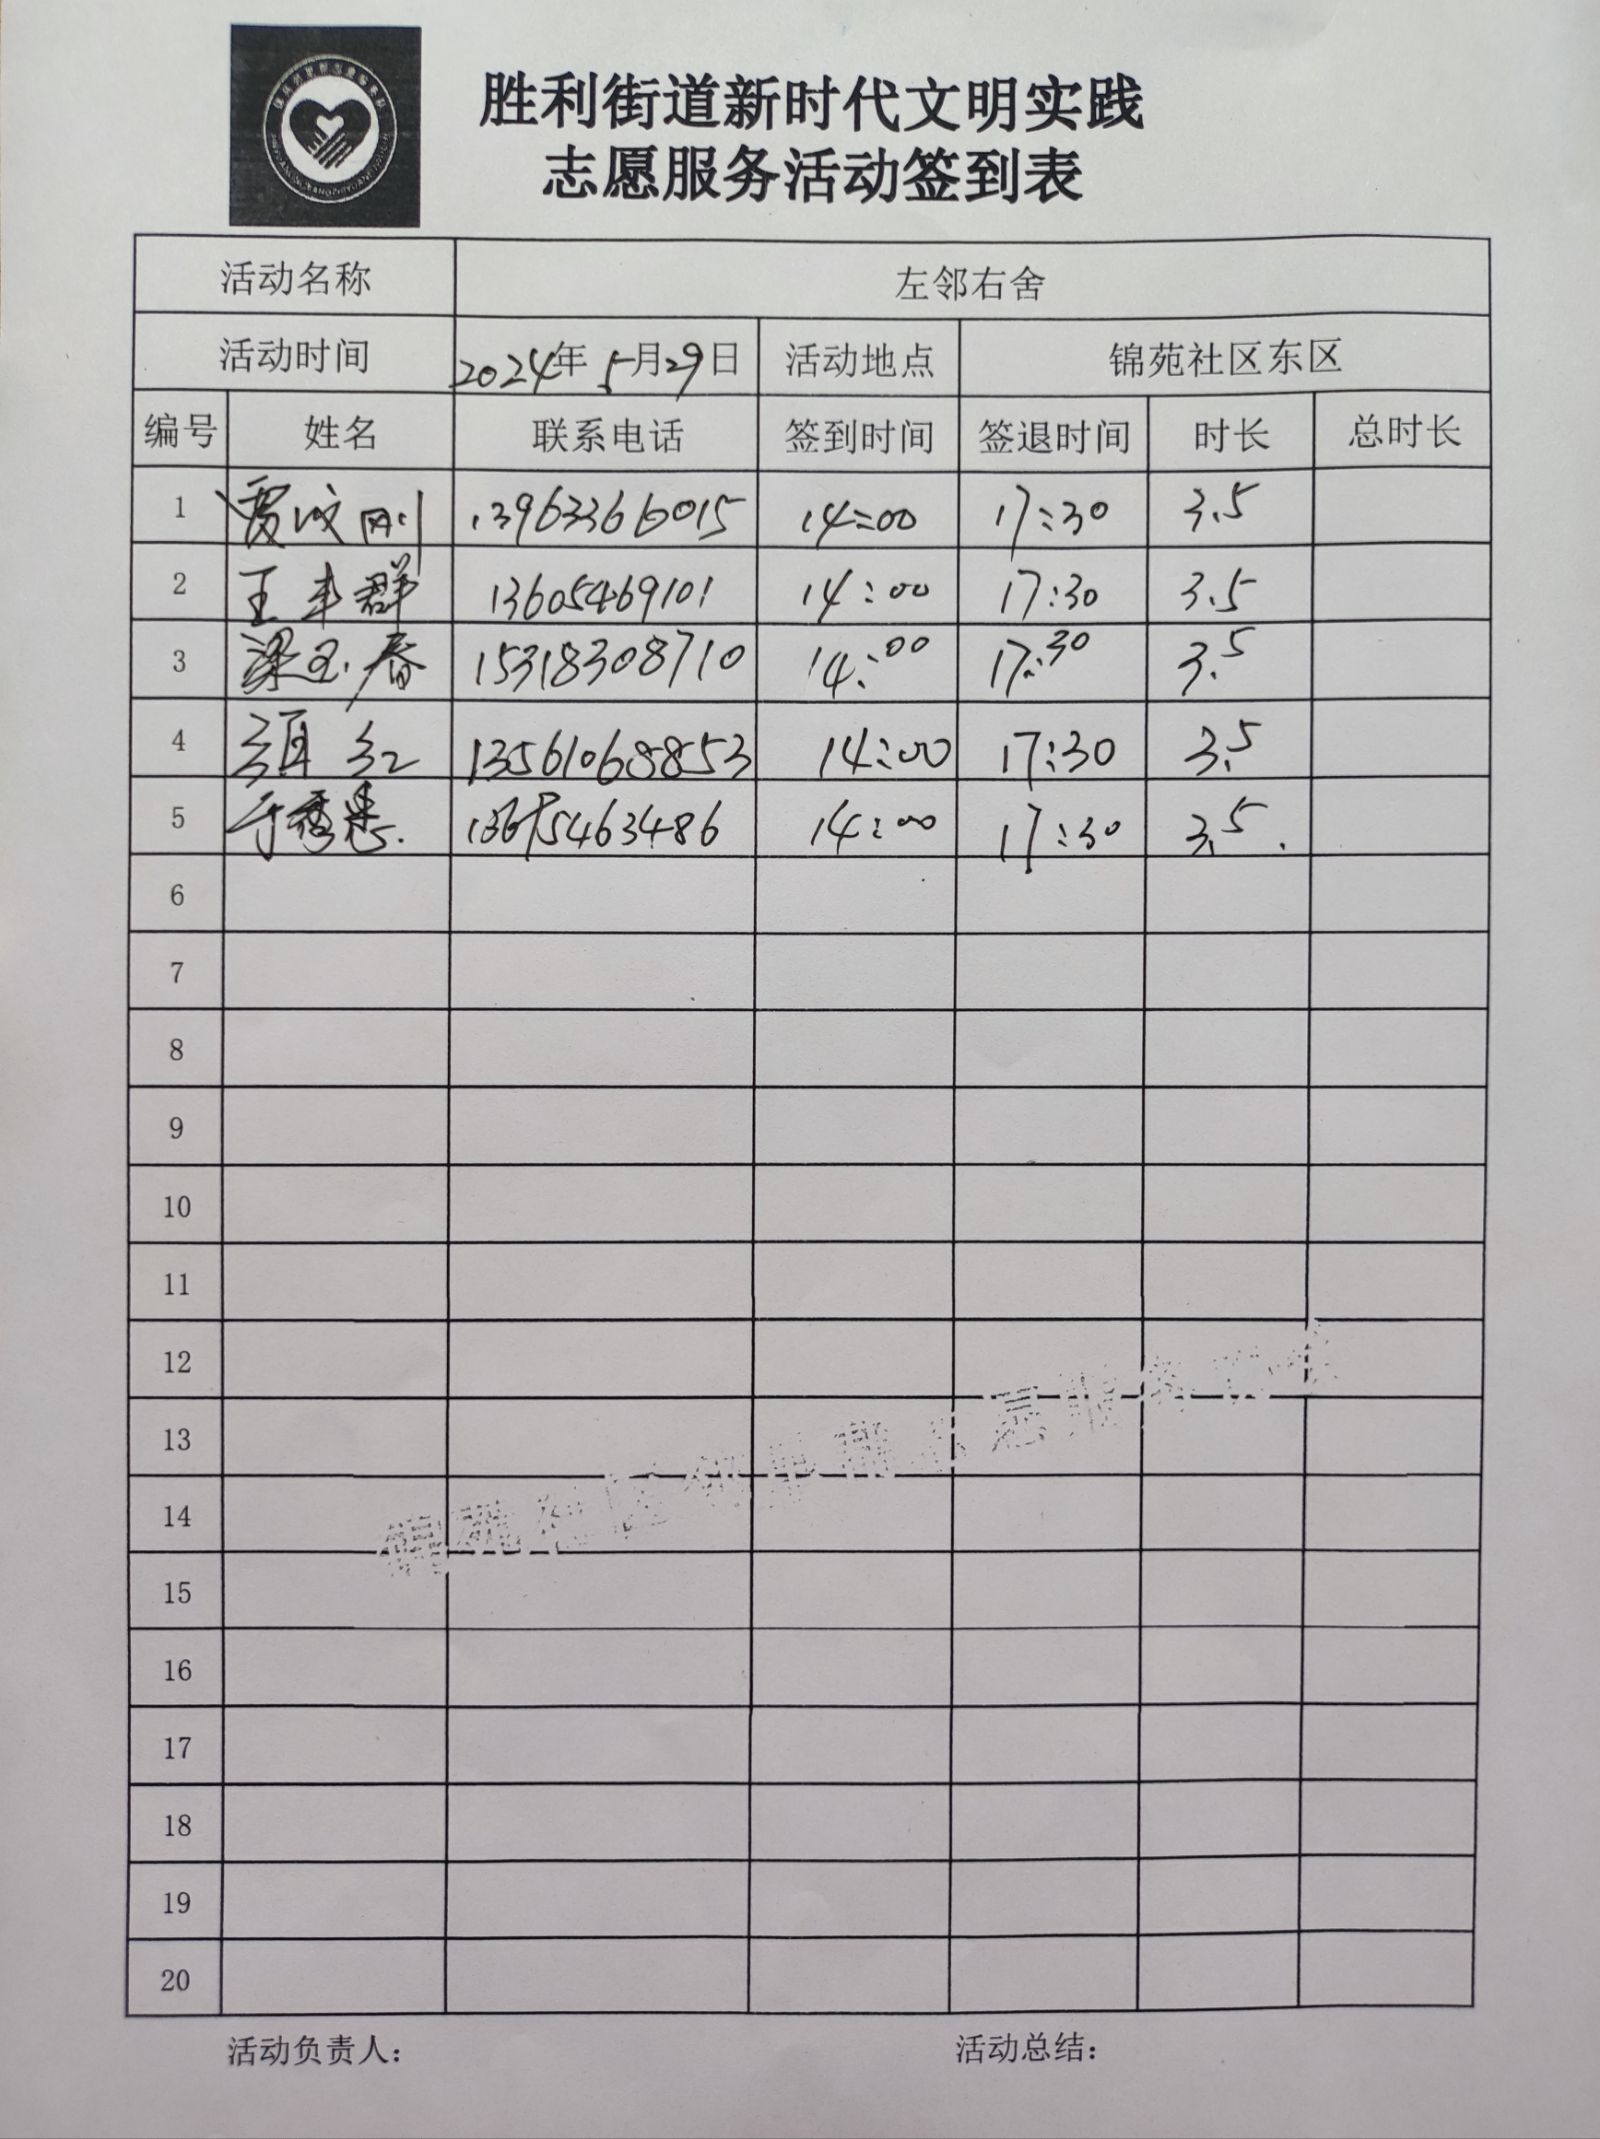 胜利街道新时代文明实践
志愿服务活动签到表
活动名称 左邻右舍
活动时间 2024年5月29日 活动地点 锦苑社区东区
编号 姓名 联系电话 签到时间 签退时间 时长 总时长
1 贾 刚 13963366015 14:00 17:30 3.5
2 王 群 13605469101 14:00 17:30 3.5
3 梁玉春 15318308710 14:00 17:30 3.5
4 红 13561068853 14:00 17:30 3.5
5 于秀 14:00 17:30 3.5
6
7
8
9
10
11
12
13
14
15
16
17
18
19
20
锦苑社区邻里帮志愿服务
活动负责人: 活动总结: